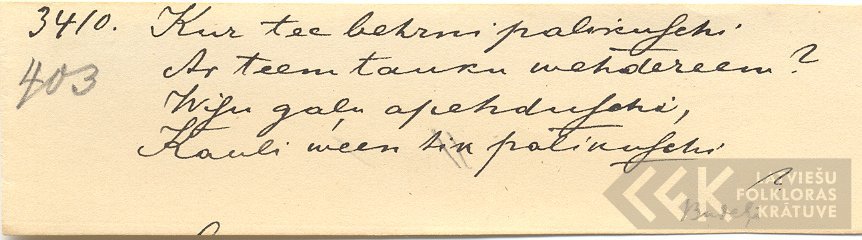 3410. Kur tee behrni palikuschi
403 Ar teem tauku wehdereem?
Wisu gaļu apehduschi,
Kauli ween tik palikuschi
LATVIEŠU
FOLKLORAS
KRĀTUVE